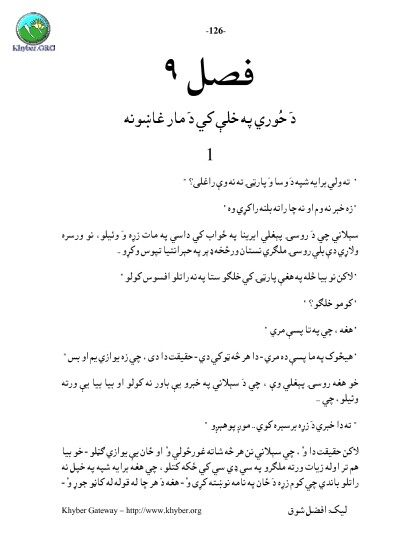 -126-
Khyber.ORG
فصل ۹
دَ حُوري په خلې کي دَ مار غاښونه
1
" ته ولي برايه شپه دَ وسا وَ پارټۍ ته نه وې راغلی؟ "
"زه خبر نه وم او نه چا راته بلنه راکړې وه "
سبلاني چي دَ روسۍ پېغلې ايرينا په ځواب کي داسي په مات زړه وَ وئيلو، نو ورسره
ولاړې دې بلې روسۍ ملگرې نستان ورڅخه ډېر په حيرانتيا تپوس وکړو۔
"لاکن نو بيا ځله په هغې پارټۍ کي خلگو ستا په نه راتلو افسوس کولو "
"کومو خلگو؟ "
"هغه ، چي په تا پسې مري "
"هيڅوک په ما پسې نه مري - دا هر څه ټوکي دي - حقيقت دا دی ، چي زه يوازي يم او بس "
خو هغه روسۍ پېغلې وې ، چي دَ سبلاني په خبرو يې باور نه کولو او بيا بيا يې ورته
وئيلو ، چي ..
" ته دا خبرې دَ زړه بر سېره کوې.. موږ پوهېږو "
لاکن حقيقت دا وُ ، چي سبلاني تن هر څه شاته غورځولي وُ او ځان يې يوازي ګڼلو - خو بيا
هم تر اوله زيات ورته ملگرو په سي ډي سي کي څکه کتلو ، چي هغه برايه شپه په خپل نه
راتلو باندي چي کوم زړه دَ ځان په نامه نوښته کړی وُ - هغه دَ هر چا له قوله له کاڼو جوړ وُ -
Khyber Gateway – http://www.khyber.org
ليک: افضل شوق